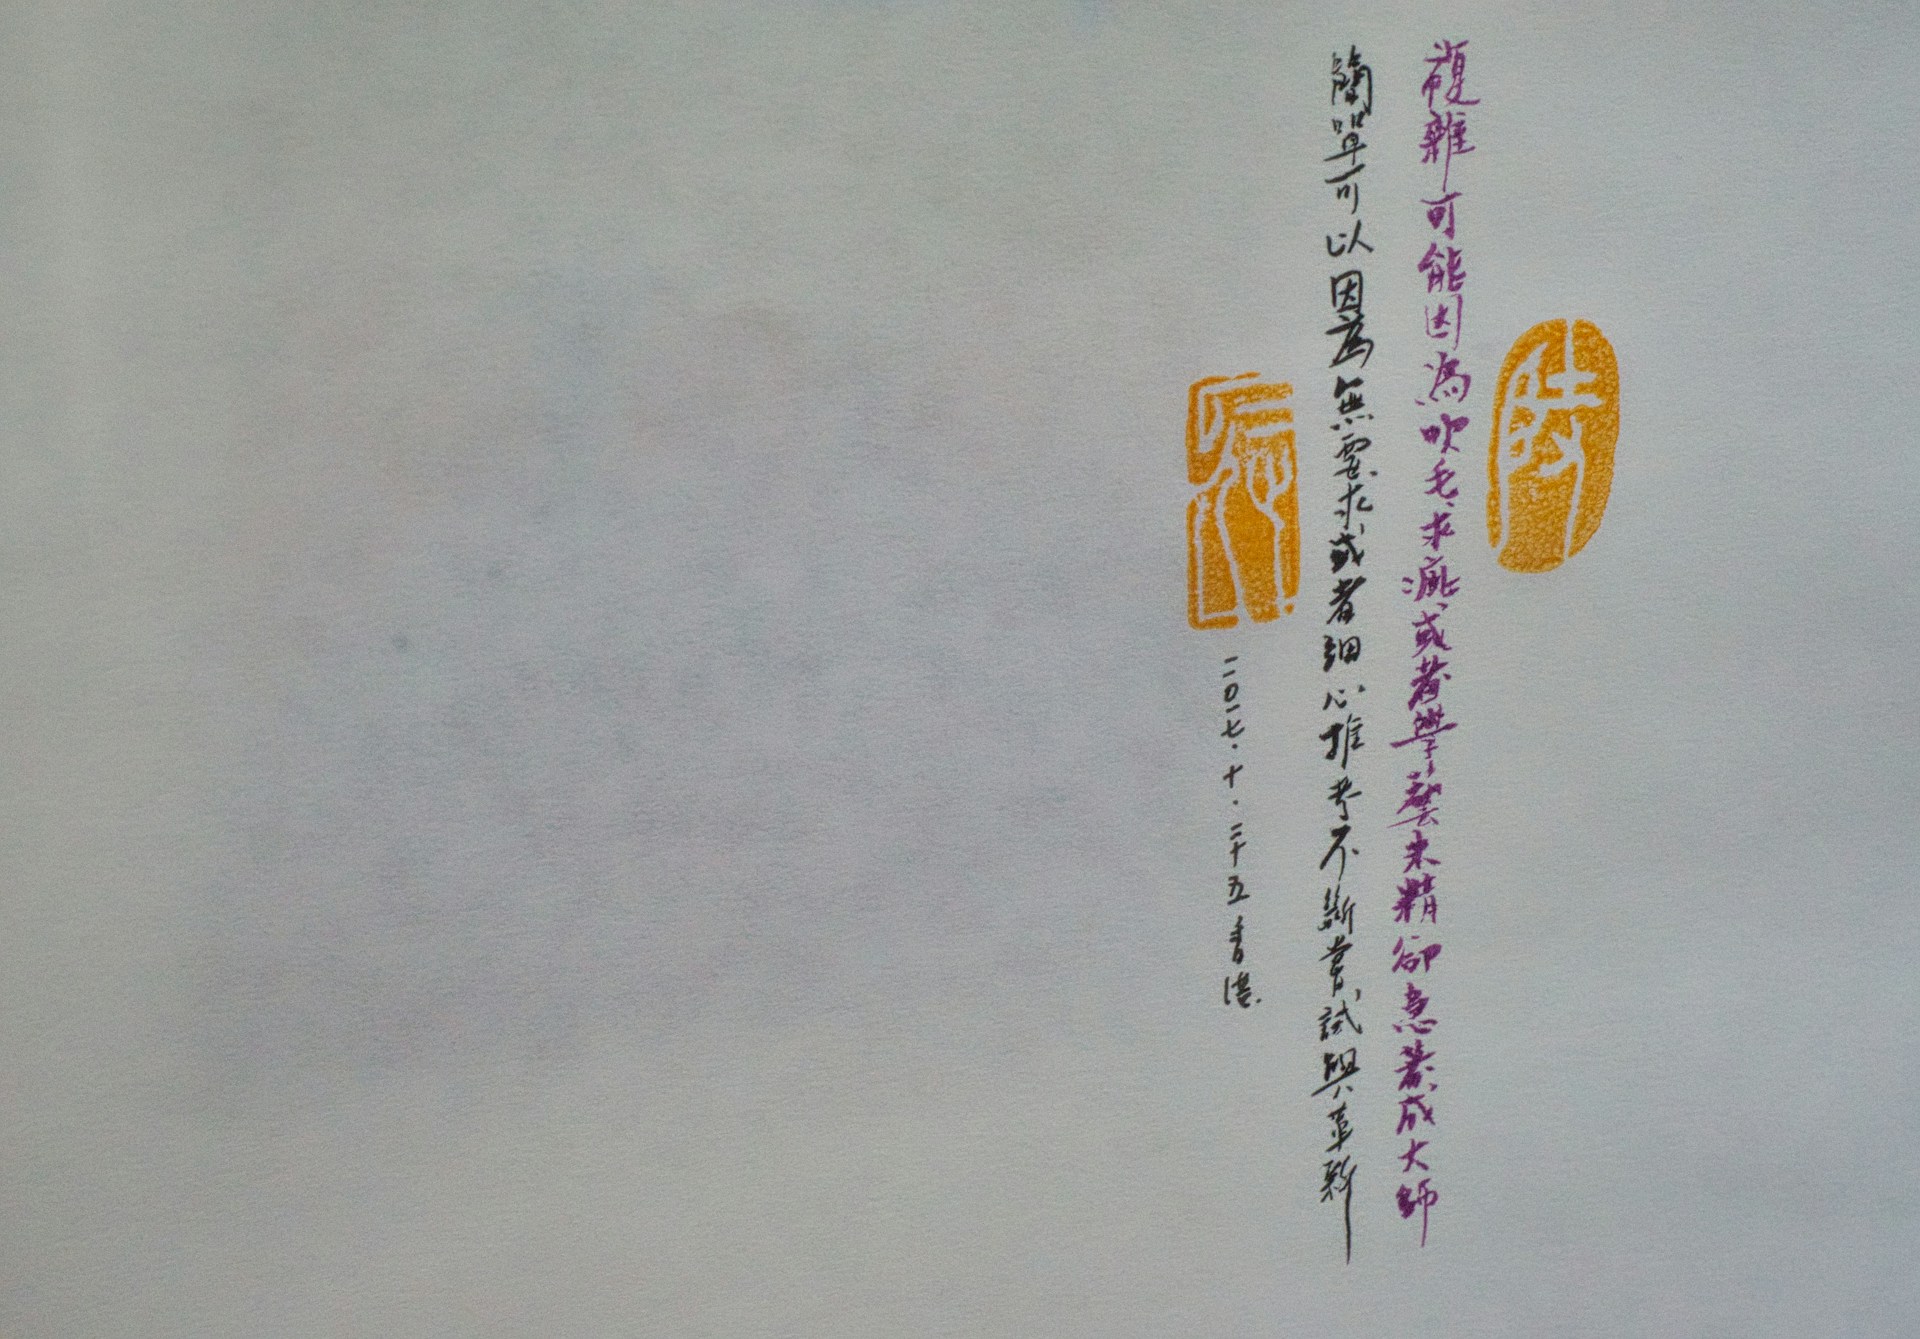 複雜可能因為吹毛求疵或者學藝未精卻急著成大師
簡單可以因為無需求或者細心推考不斷嘗試與革新
二〇一七.十.二十五香港